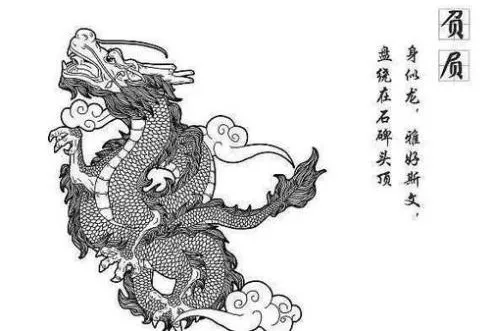 负屃
身似龙，雅好斯文，
盘绕在石碑头顶